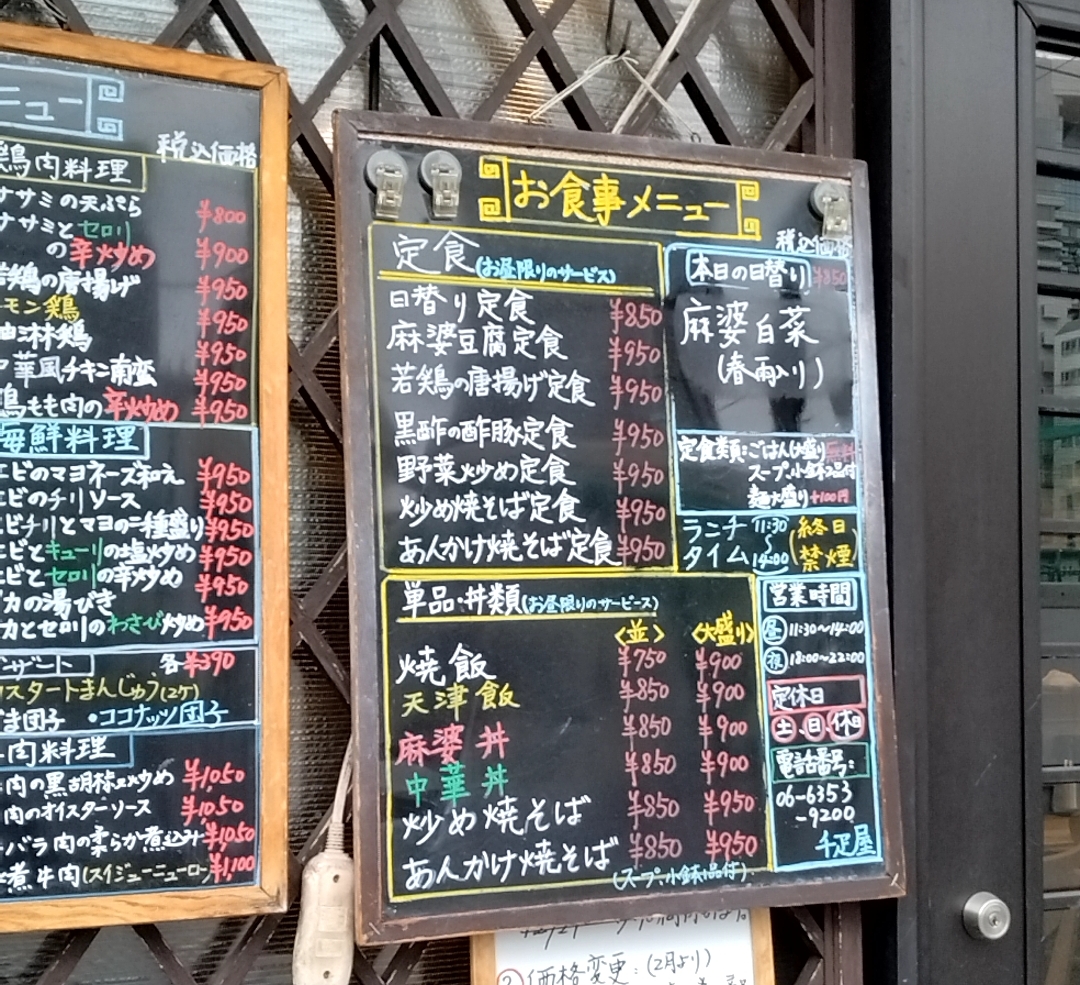 ニュー
税込価格
鶏肉料理
ササミの天ぷら ¥800
ササミとセロリ
の辛炒め ¥900
若鶏の唐揚げ ¥950
モン鶏 ¥950
油淋鶏 ¥950
中華風チキン南蛮 ¥950
鶏もも肉の辛炒め ¥950
海鮮料理
エビのマヨネーズ和え ¥950
エビのチリソース ¥950
エビチリとマヨの二種盛り ¥950
エビとキューリの塩炒め ¥950
エビとセロリの辛炒め ¥950
イカの湯びき
イカとセロリのわさび炒め ¥950
デザート 各¥390
カスタートまんじゅう(2ケ)
ごま団子 •ココナッツ団子
牛肉料理
牛肉の黒胡椒炒め ¥1,050
牛肉のオイスターソース ¥1,050
牛バラ肉の柔らか煮込み ¥1,050
水煮牛肉(スイジューニューロー) ¥1,100
お食事メニュー
税込価格
定食(お昼限りのサービス)
日替り定食 ¥850
麻婆豆腐定食 ¥950
若鶏の唐揚げ定食 ¥950
黒酢の酢豚定食 ¥950
野菜炒め定食 ¥950
炒め焼そば定食 ¥950
あんかけ焼そば定食 ¥950
本日の日替り ¥850
麻婆白菜
(春雨入り)
定食類:ごはん大盛り無料
スープ、小鉢2品付
麺大盛り+100円
ランチタイム 11:30〜14:00
(終日、禁煙)
単品・丼類(お昼限りのサービス)
<並> <大盛り>
焼飯 ¥750 ¥900
天津飯 ¥850 ¥900
麻婆丼 ¥850 ¥900
中華丼 ¥850 ¥900
炒め焼そば ¥850 ¥950
あんかけ焼そば ¥850 ¥950
(スープ、小鉢1品付)
営業時間
昼 11:30〜14:00
夜 18:00〜22:00
定休日
土、日、祝日
電話番号:
06-6353
-9200
千疋屋
②価格変更:(2月より)